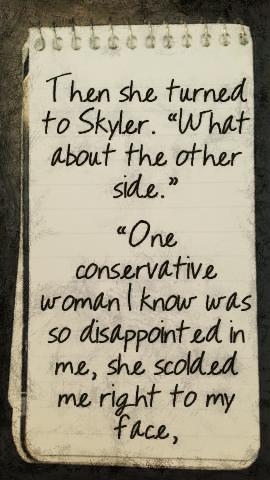 Then she turned
to Skyler. “What
about the other
side.”
“One
conservative
woman I know was
so disappointed in
me, she scolded
me right to my
face,